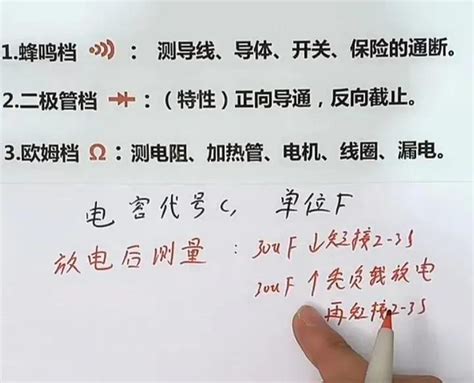 1.蜂鸣档 : 测导线、导体、开关、保险的通断。
2.二极管档 :(特性)正向导通,反向截止。
3.欧姆档 Ω:测电阻、加热管、电机、线圈、漏电。
电容代号C,单位F
放电后测量:30uF↓短接2-3S
30uF↑先负载放电
再短接2-3S